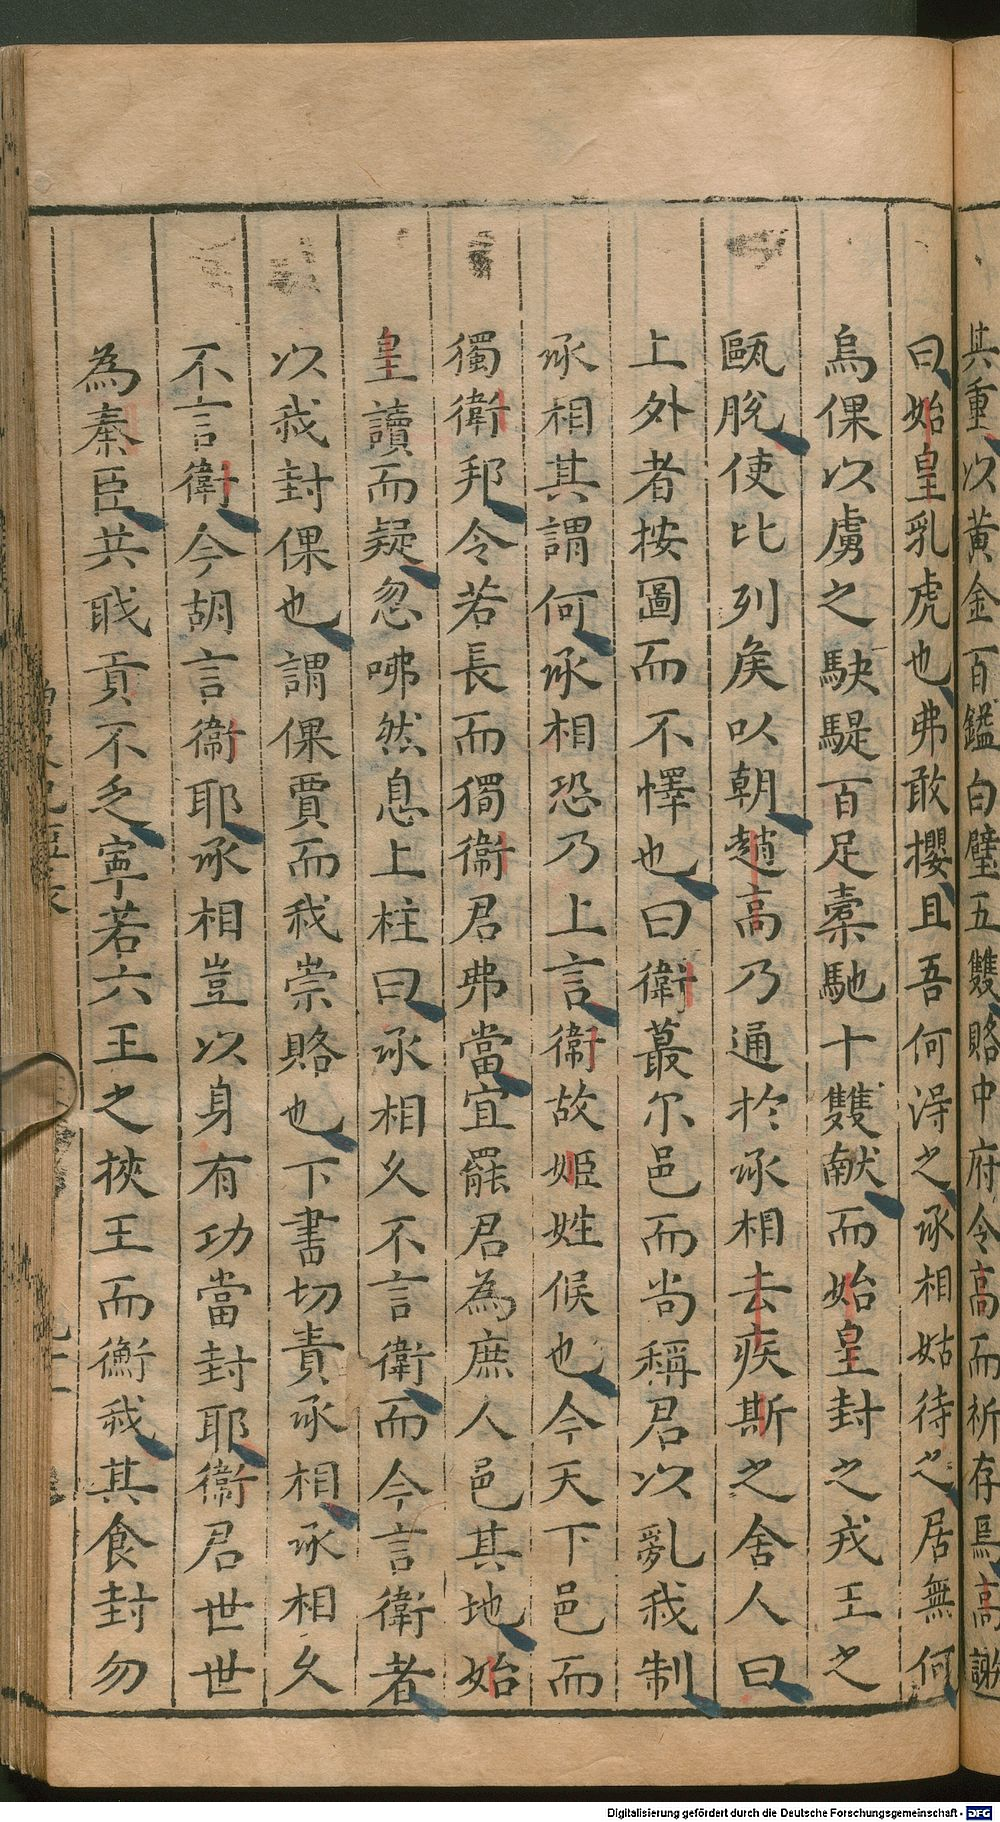 其重以黃金百鎰白璧五雙賂中府令高而祈存焉高謝
曰始皇乳虎也弗敢攖且吾何得之丞相姑待之居無何
烏倮以虜之駃騠百足橐馳十雙献而始皇封之戎王之
甌脫使比列矦以朝趙高乃通於丞相去疾斯之舍人曰
上外者按圖而不懌也曰衛蕞尔邑而尚稱君以亂我制
丞相其謂何丞相恐乃上言衛故姬姓候也今天下邑而
獨衛邦令若長而獨衛君弗當宜罷君為庶人邑其地始
皇讀而疑忽咈然息上柱曰丞相久不言衛而今言衛者
以我封倮也謂倮賈而我崇賂也下書切責丞相丞相久
不言衛今胡言衛耶丞相豈以身有功當封耶衛君世世
為秦臣共職貢不乏寧若六王之挾王而衡我其食封勿
Digitalisierung gefördert durch die Deutsche Forschungsgemeinschaft - DFG